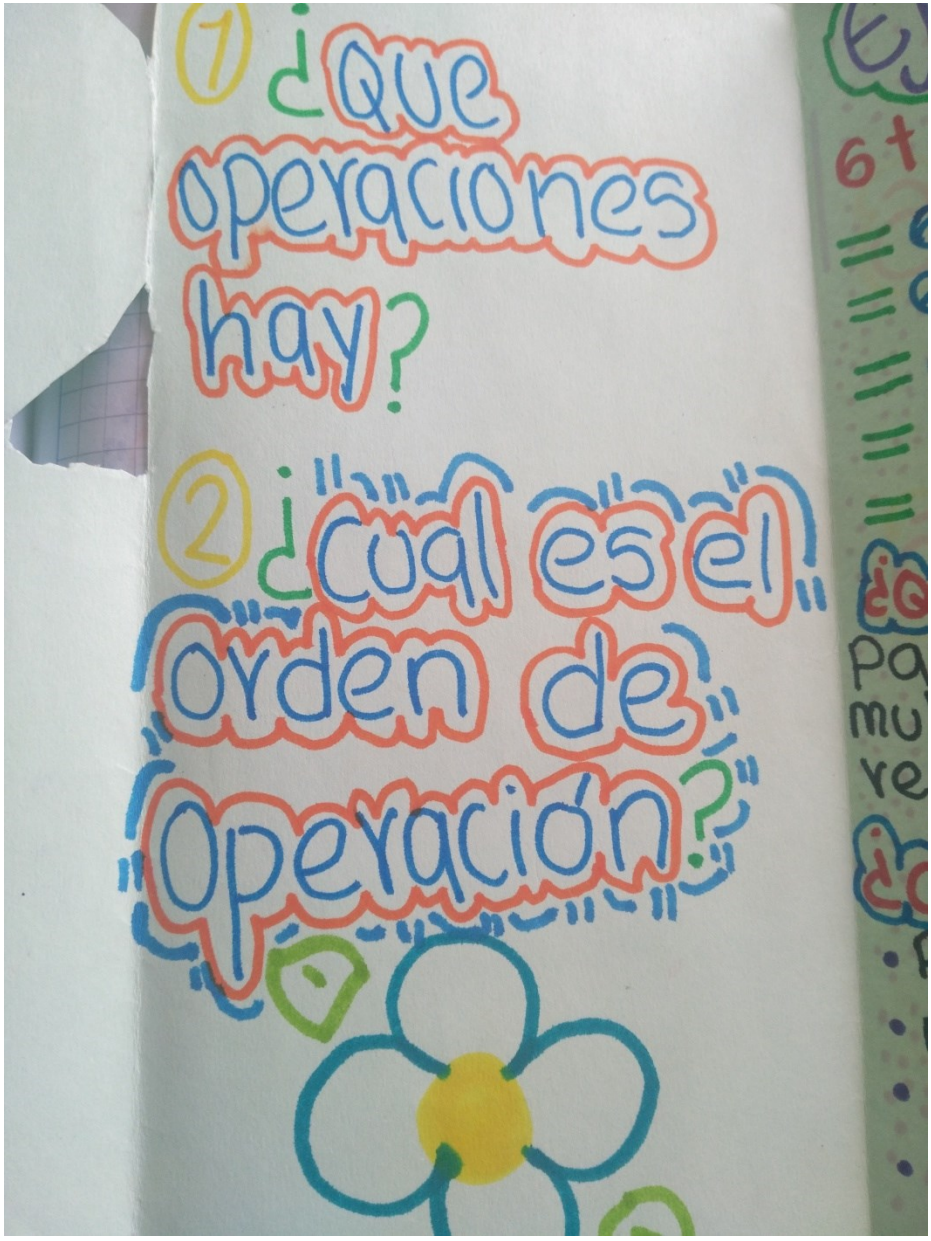 1 ¿que
operaciones
hay?
2 ¿cual es el
orden de
operación?
6+
=
=
=
=
=